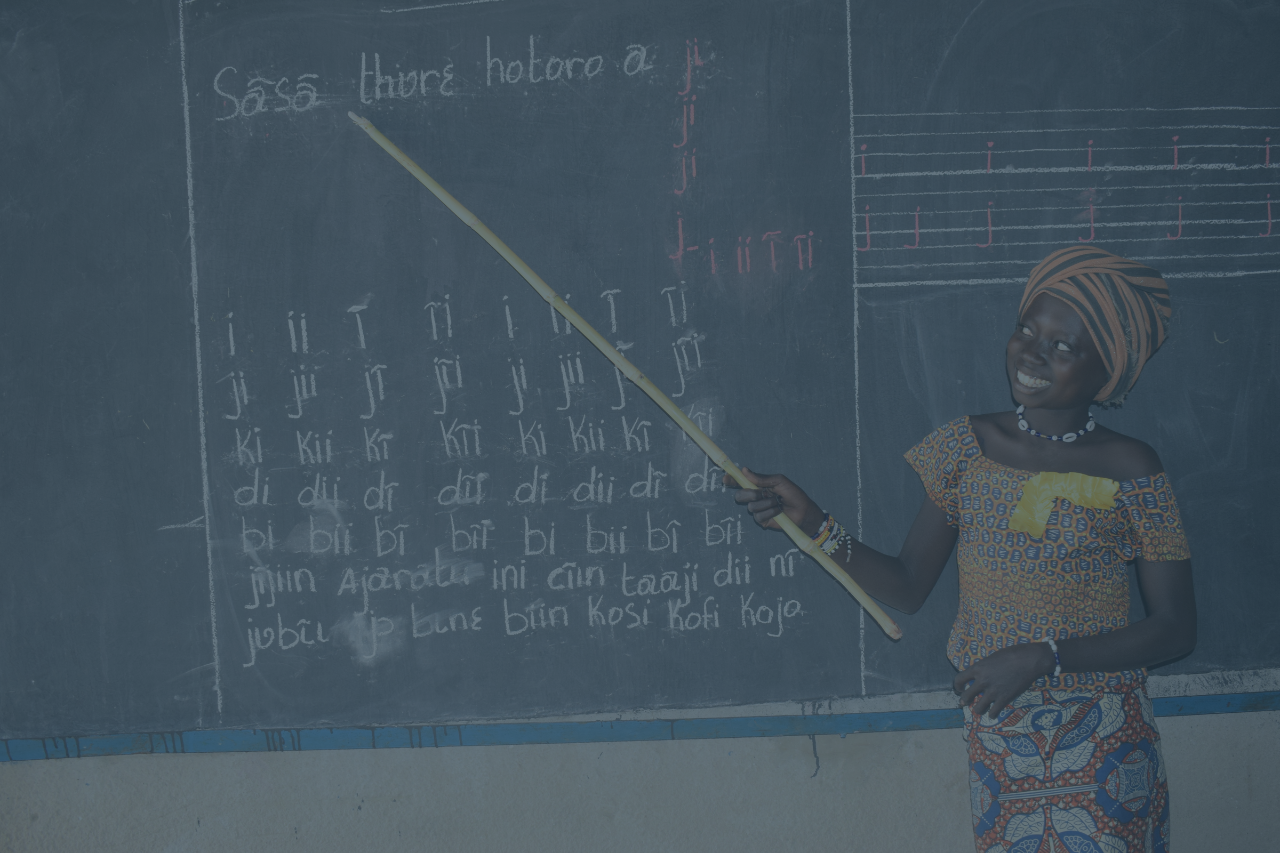 Sãsã thʋrɛ hotoro a ji
ji
ji
j - i ii ĩ ĩi
i ii ĩ ĩi i ii ĩ ĩi
ji jii jĩ jĩi ji jii jĩi
ki kii kĩ kĩi ki kii kĩ kĩi
di dii dĩ dĩi di dii dĩ dĩi
bi bii bĩ bĩi bi bii bĩ bĩi
Ajaratu ini cĩin taaji dii nĩ
bunɛ biin Kosi Kofi Koja
i i i i i
j j j j j j